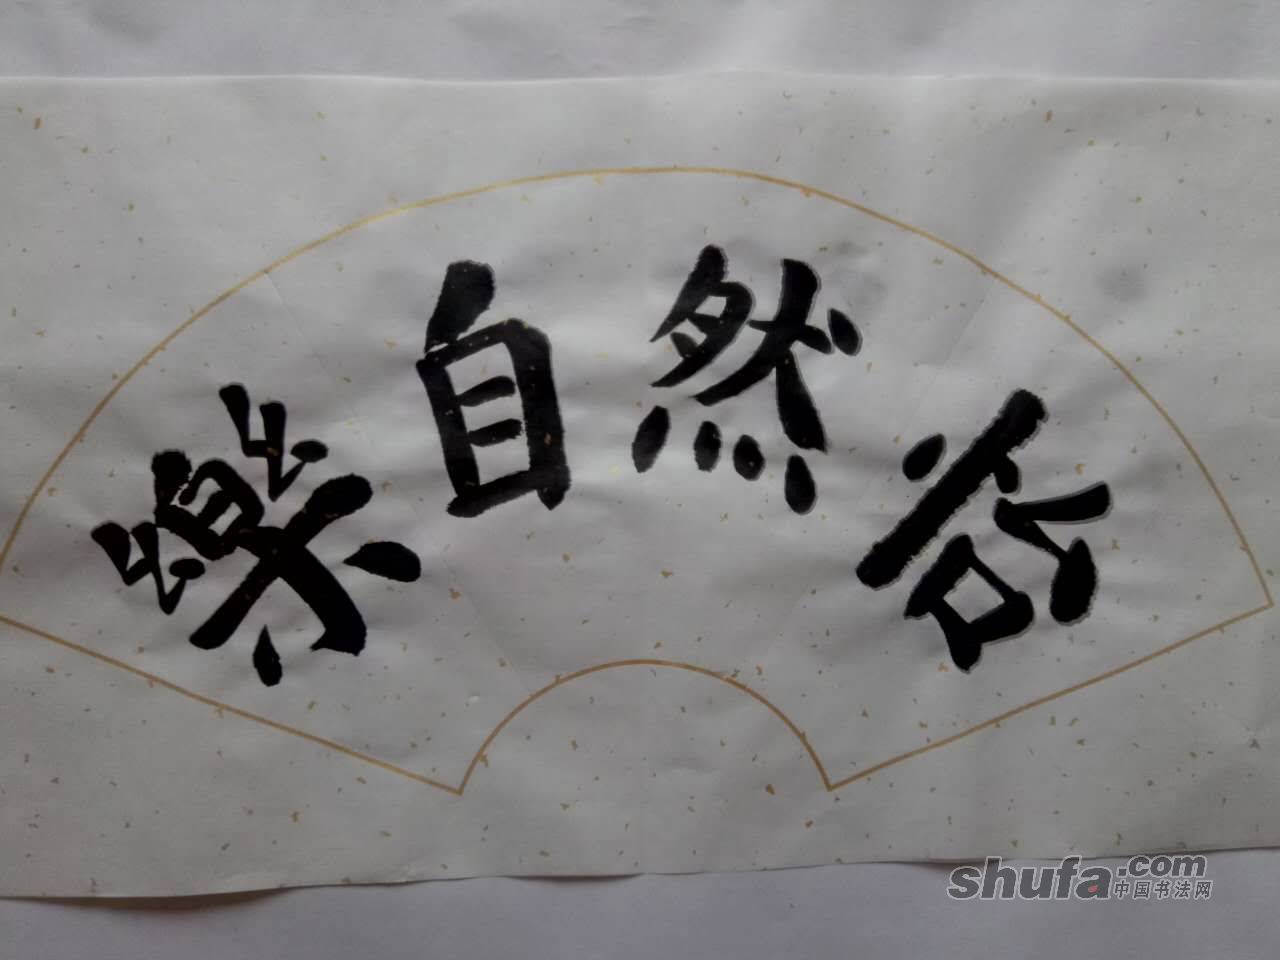 怡然自樂
shufa.com
中国书法网